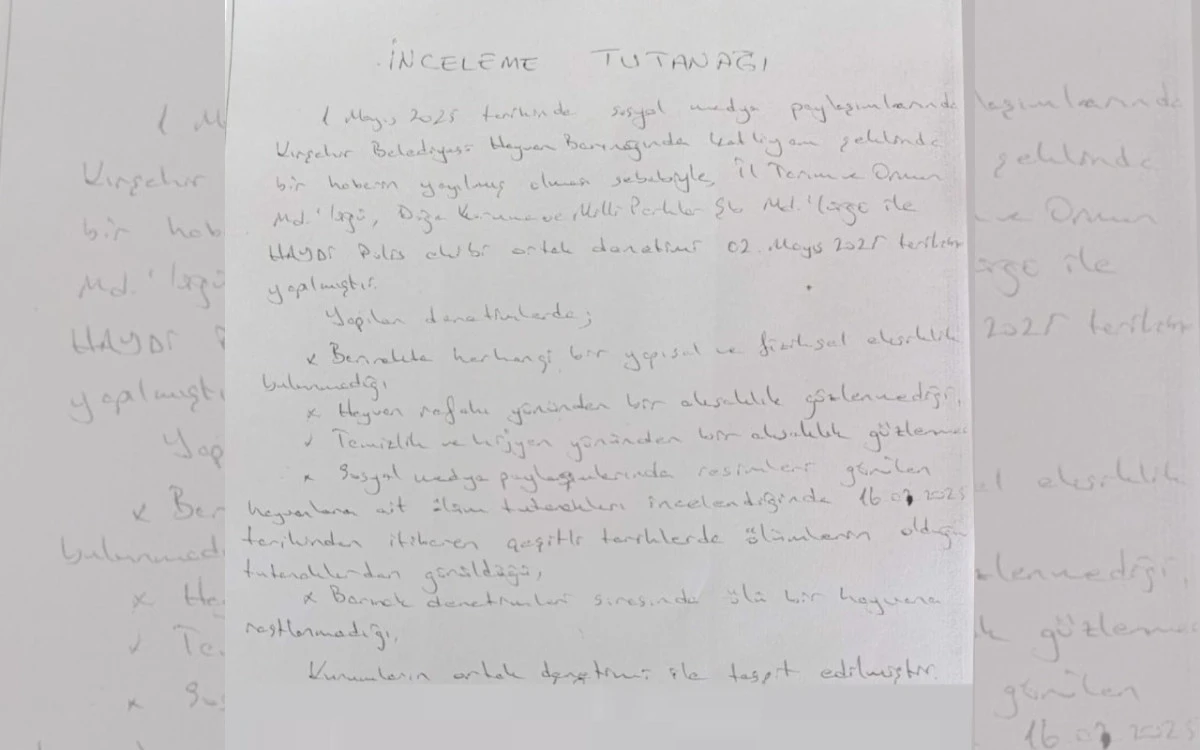 İNCELEME TUTANAĞI
1 Mayıs 2025 tarihinde sosyal medya paylaşımlarında
Kırşehir Belediyesi Hayvan Barınağında katliyam şeklinde
bir haberin yayılmış olması sebebiyle, İl Tarım ve Orman
Md.'lüğü, Doğa Koruma ve Milli Parklar Şb Md.'lüğü ile
HAYDİ Polis ortak denetimi 02. Mayıs 2025 tarihinde
yapılmıştır.
Yapılan denetimlerde;
x Barınakta herhangi bir yapısal ve fiziksel eksiklik
bulunmadığı
x Hayvan refahı yönünden bir aksaklık gözlenmediği,
✓ Temizlik ve hijyen yönünden bir aksaklık gözlenme
x Sosyal medya paylaşımlarında resimleri görülen
hayvanlara ait ölüm tutanakları incelendiğinde 16.03.2025
tarihinden itibaren çeşitli tarihlerde ölümlerin olduğu
tutanaklardan görüldüğü,
x Barınak denetimleri sırasında ölü bir hayvana
rastlanmadığı,
Kurumların ortak denetimi ile tespit edilmiştir.